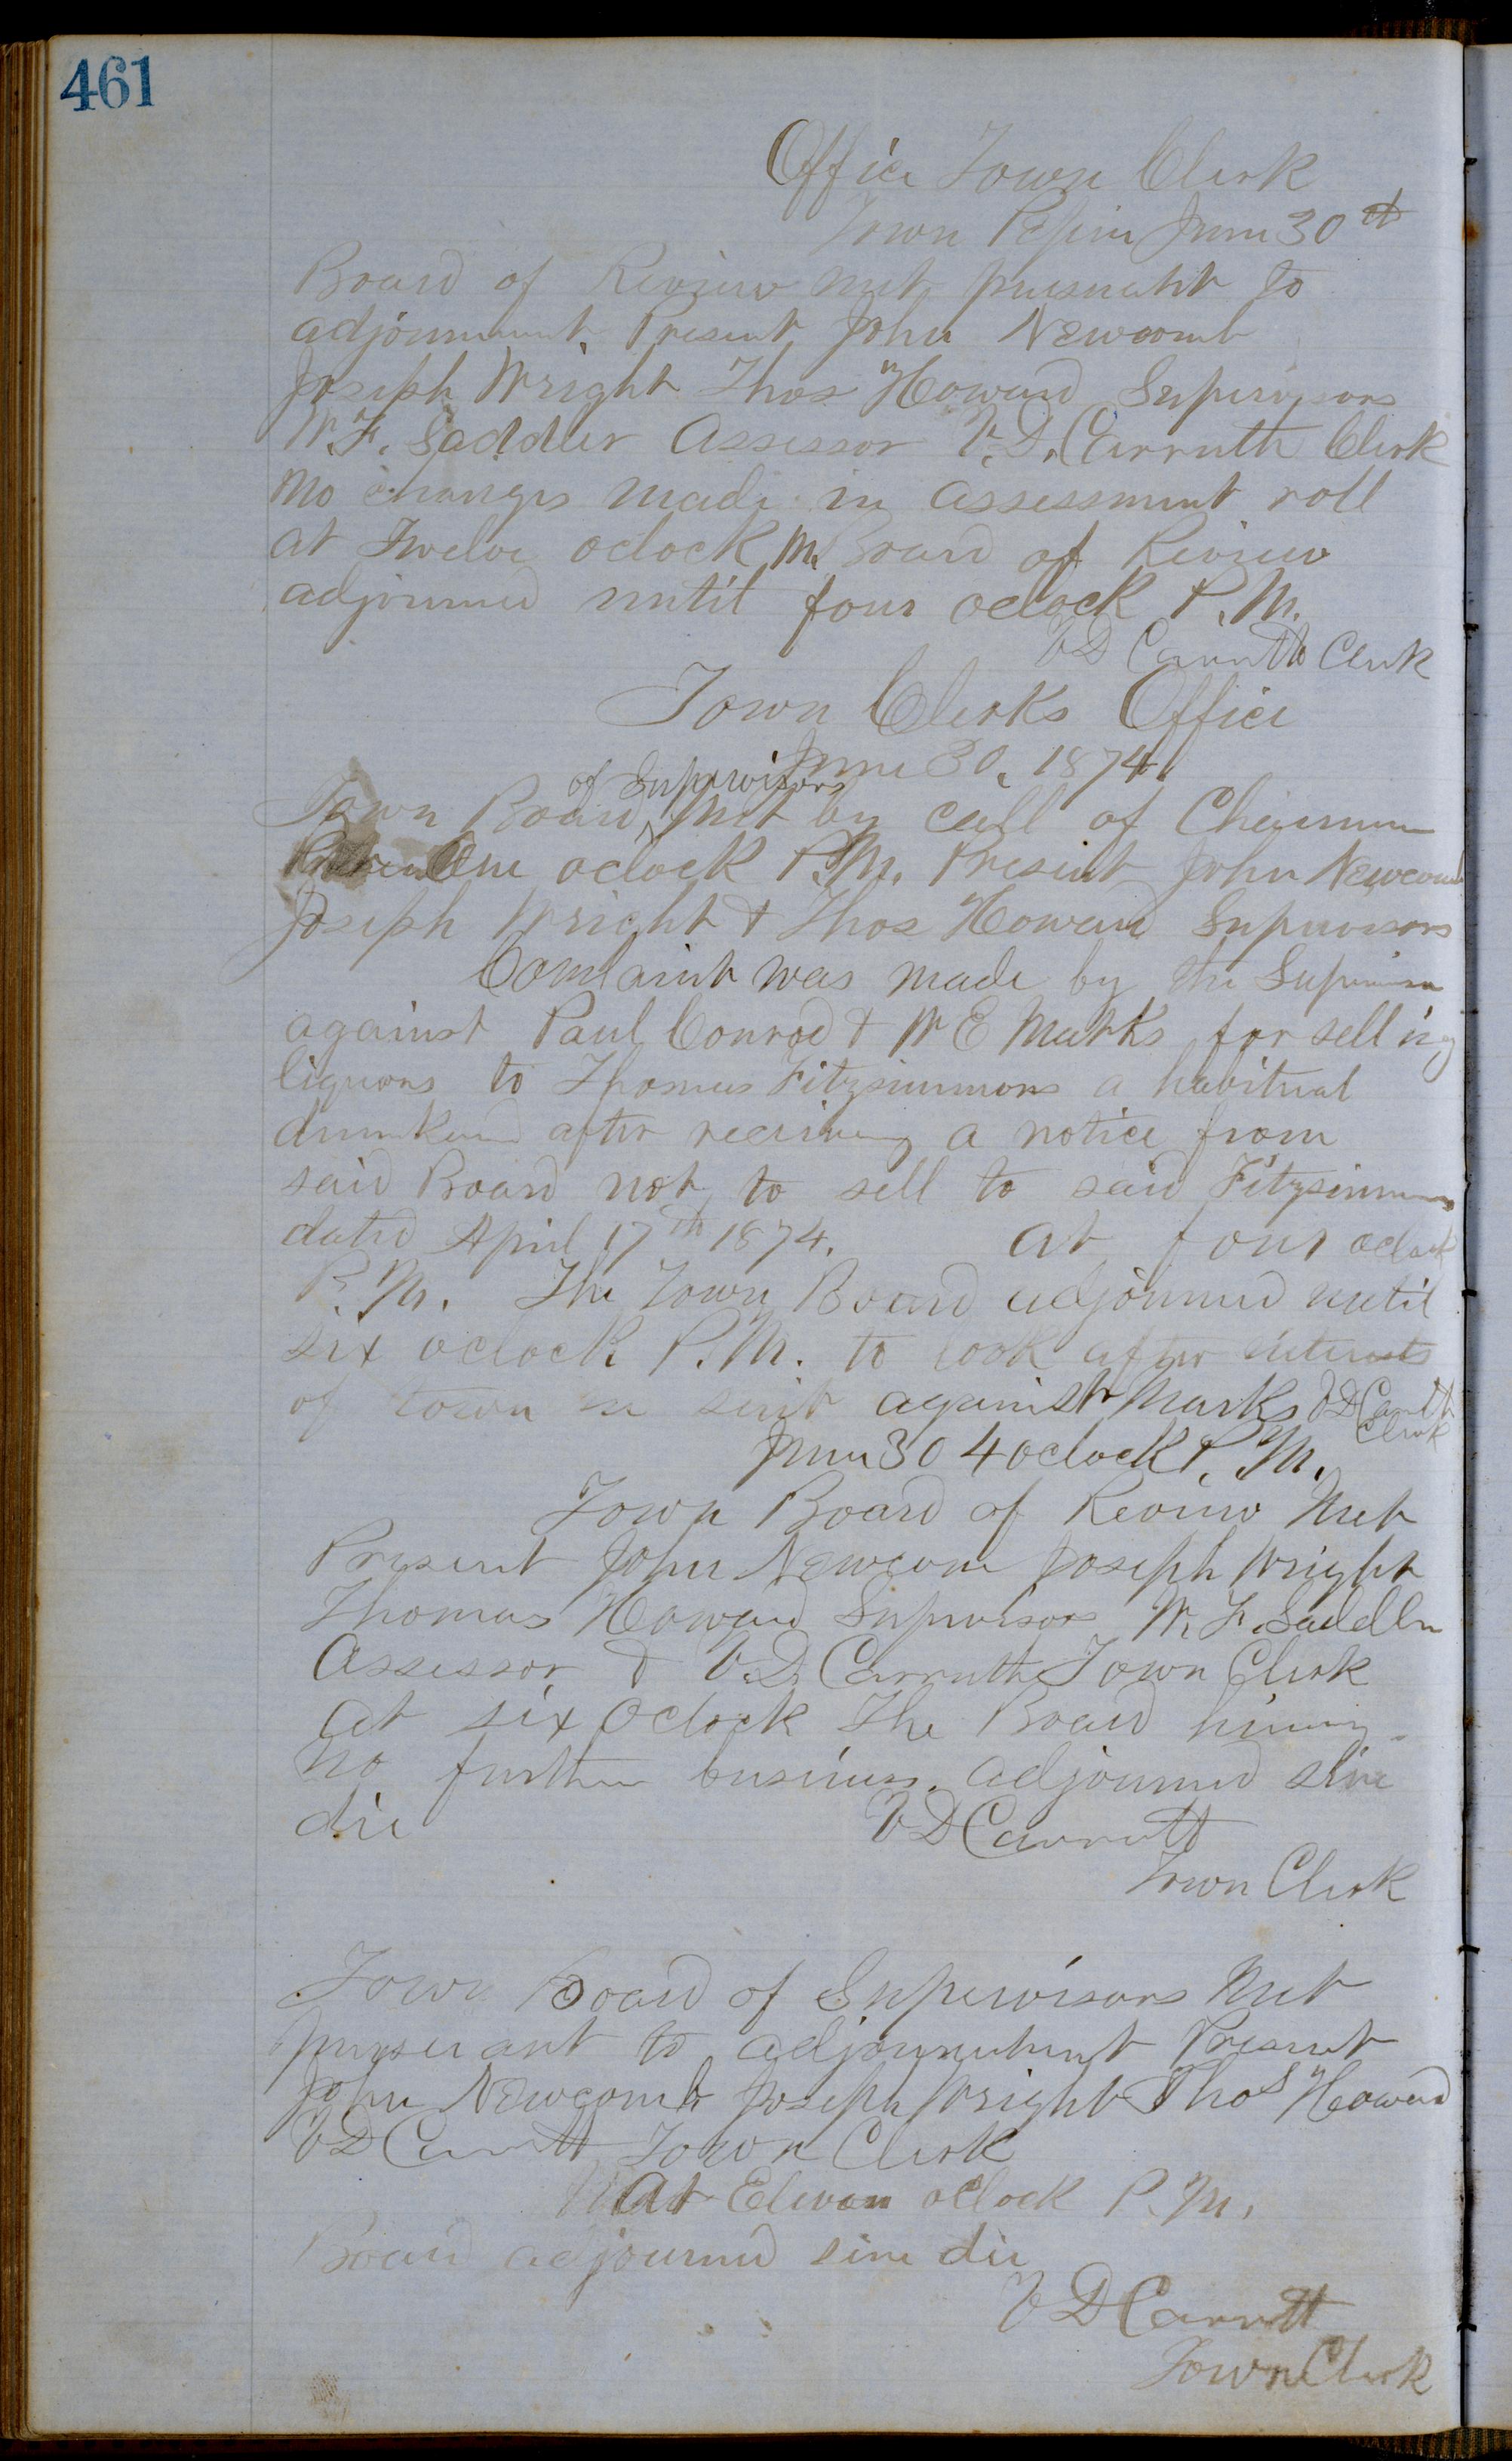 461
Office Town Clerk
Town Pepin June 30th
Board of Review met pursuant to
adjournment. Present John Newcomb
Joseph Wright Thos Howard Supervisors
W. F. Saddler Assessor V. D. Carruth Clerk
No changes made in assessment roll
at Twelve oclock M. Board of Review
adjourned until four oclock P. M.
V D Carruth Clerk
Town Clerks Office
June 30, 1874.
of Supervisors
Town Board met by call of Chairman
One oclock P. M. Present John Newcomb
Joseph Wright & Thos Howard Supervisors
Complaint was made by the Supervisors
against Paul Conrod & W E Marks for selling
liquors to Thomas Fitzsimmons a habitual
drunkard after receiving a notice from
said Board not to sell to said Fitzsimmons
dated April 17th 1874. at four oclock
P. M. The Town Board adjourned until
six oclock P. M. to look after interests
of town in suit against Marks V D Carruth
Clerk
June 30 4 oclock P. M.
Town Board of Review met
Present John Newcom Joseph Wright
Thomas Howard Supervisors W. F. Saddler
Assessor & V. D. Carruth Town Clerk
at six oclock The Board having
no further business. adjourned sine
die V D Carruth
Town Clerk
Town Board of Supervisors met
pursuant to adjournment Present
John Newcomb Joseph Wright Thos Howard
V D Carruth Town Clerk
At Eleven oclock P. M.
Board adjourned sine die
V D Carruth
Town Clerk